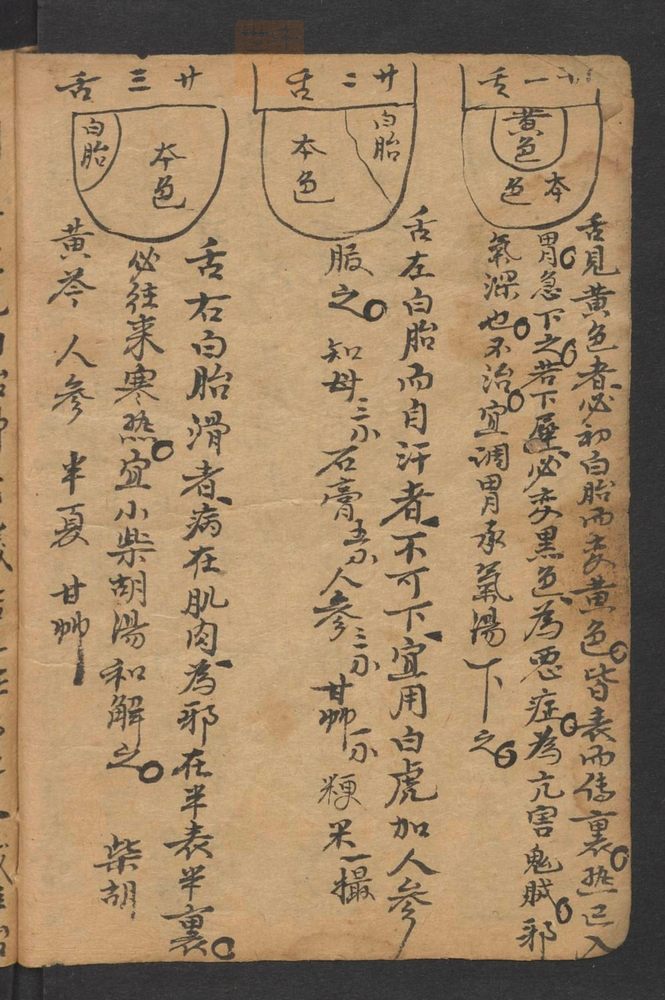 廿一舌
黄色
本色
舌見黄色者必初白胎而变黄色皆表而傳裏热已入
胃急下之若下遅必变黒色為悪症為亢害鬼賊邪
氣深也不治宜調胃承氣湯下之
廿二舌
白胎
本色
舌左白胎而自汗者不可下宜用白虎加人參
服之 知母三分 石膏五分 人參三分 甘艸一分 粳米一撮
廿三舌
本色
白胎
舌右白胎滑者病在肌肉為邪在半表半裏
必往来寒热宜小柴胡湯和解之 柴胡
黄芩 人參 半夏 甘艸